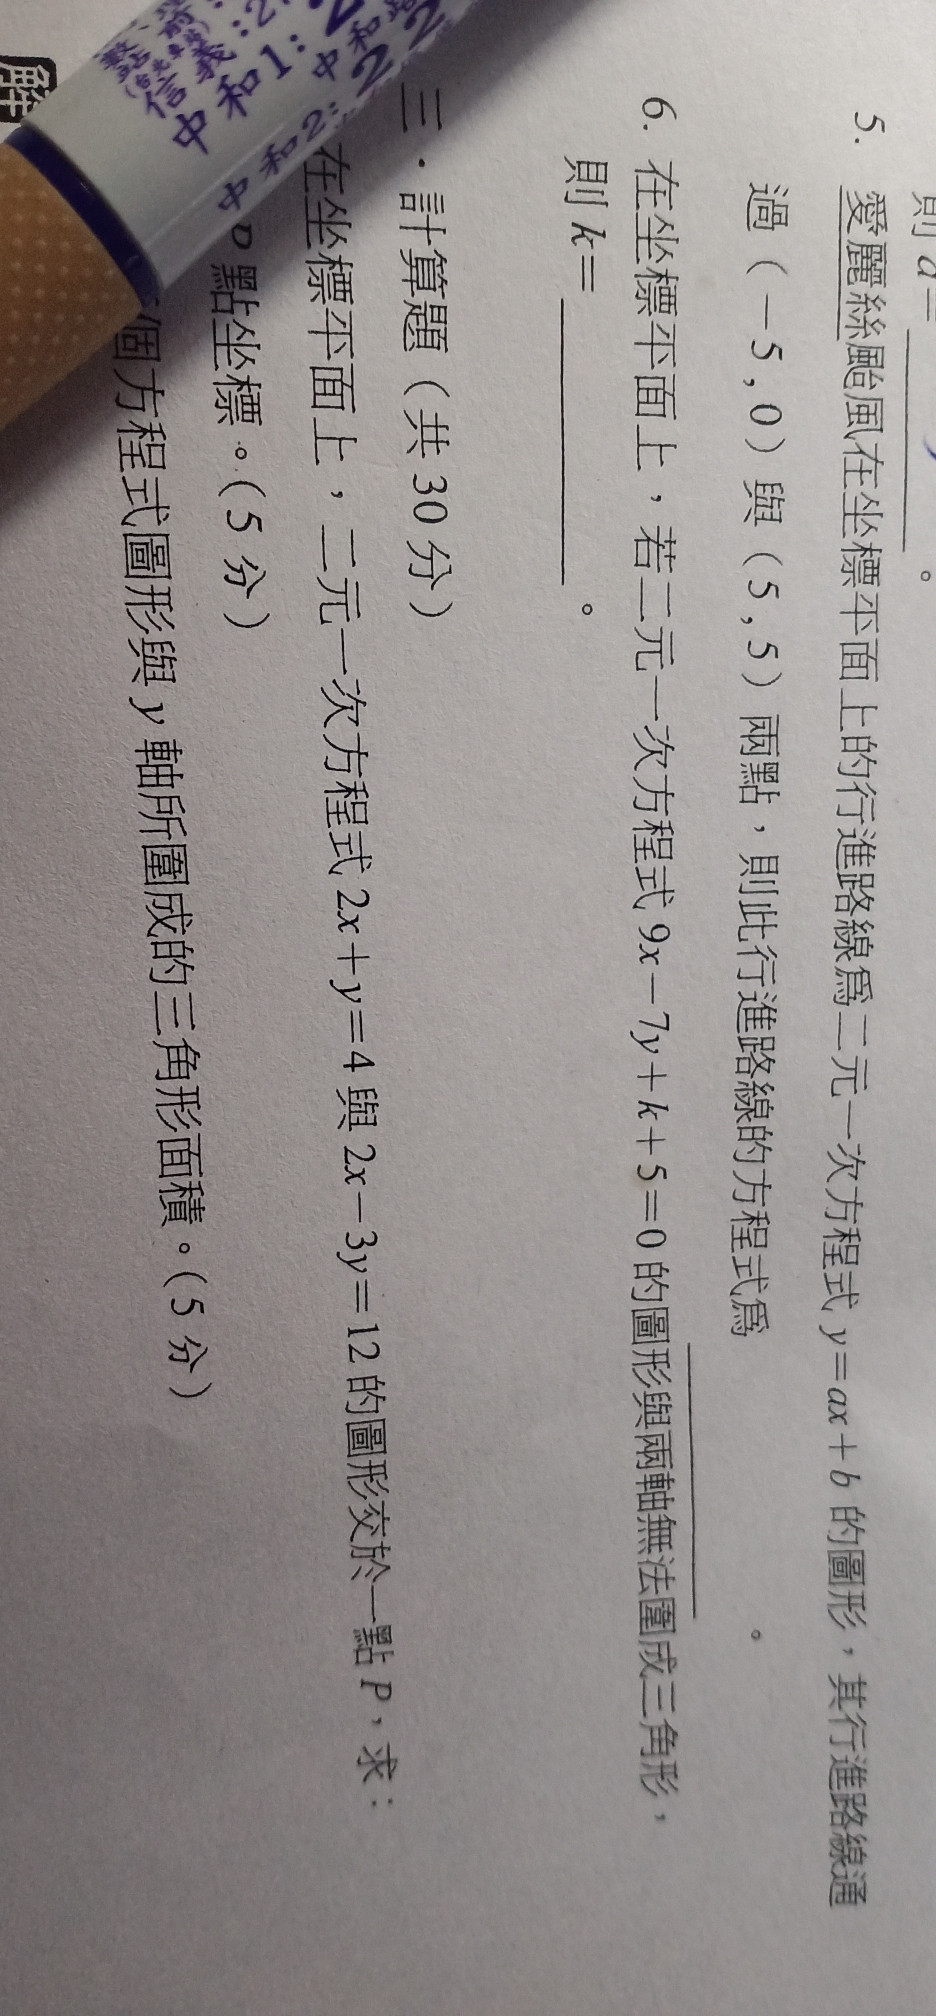 則 a=
。
5. 愛麗絲颱風在坐標平面上的行進路線為二元一次方程式 y=ax+b 的圖形，其行進路線通
過（－5 , 0）與（5 , 5）兩點，則此行進路線的方程式為
。
6. 在坐標平面上，若二元一次方程式 9x－7y＋k＋5=0 的圖形與兩軸無法圍成三角形，
則 k=
。
三．計算題（共 30 分）
在坐標平面上，二元一次方程式 2x＋y=4 與 2x－3y=12 的圖形交於一點 P，求：
點坐標。（5 分）
個方程式圖形與 y 軸所圍成的三角形面積。（5 分）
解
信義:2
中和1:2
中和2:22